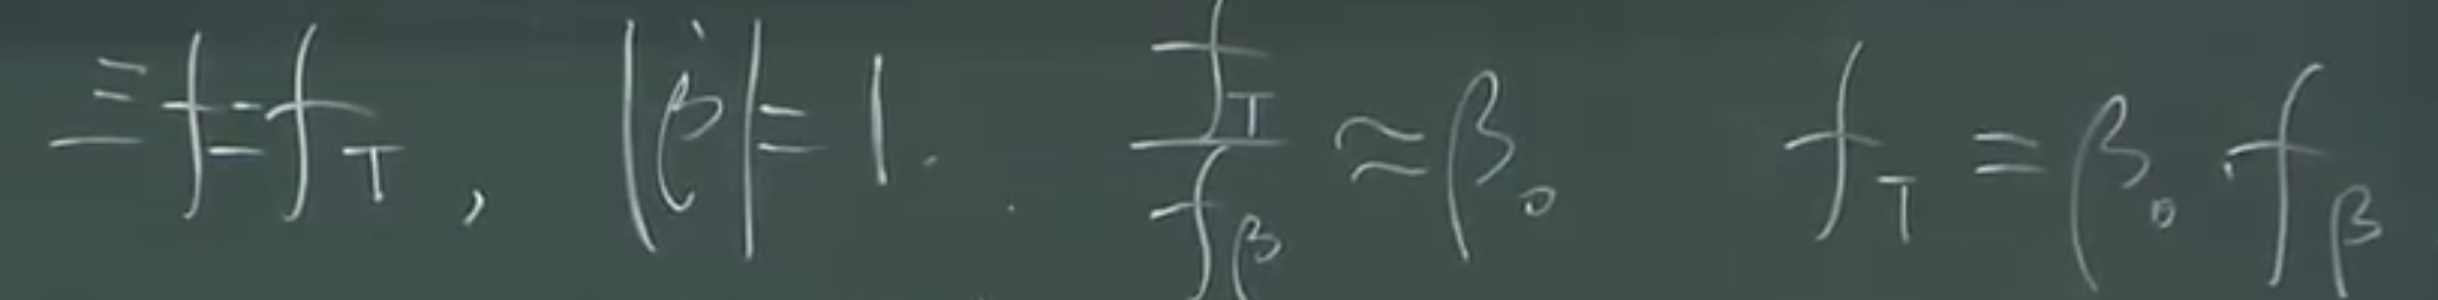 ≡ f = f_T , |β̇| = 1 . f_T / f_β ≈ β₀ f_T = β₀ · f_β